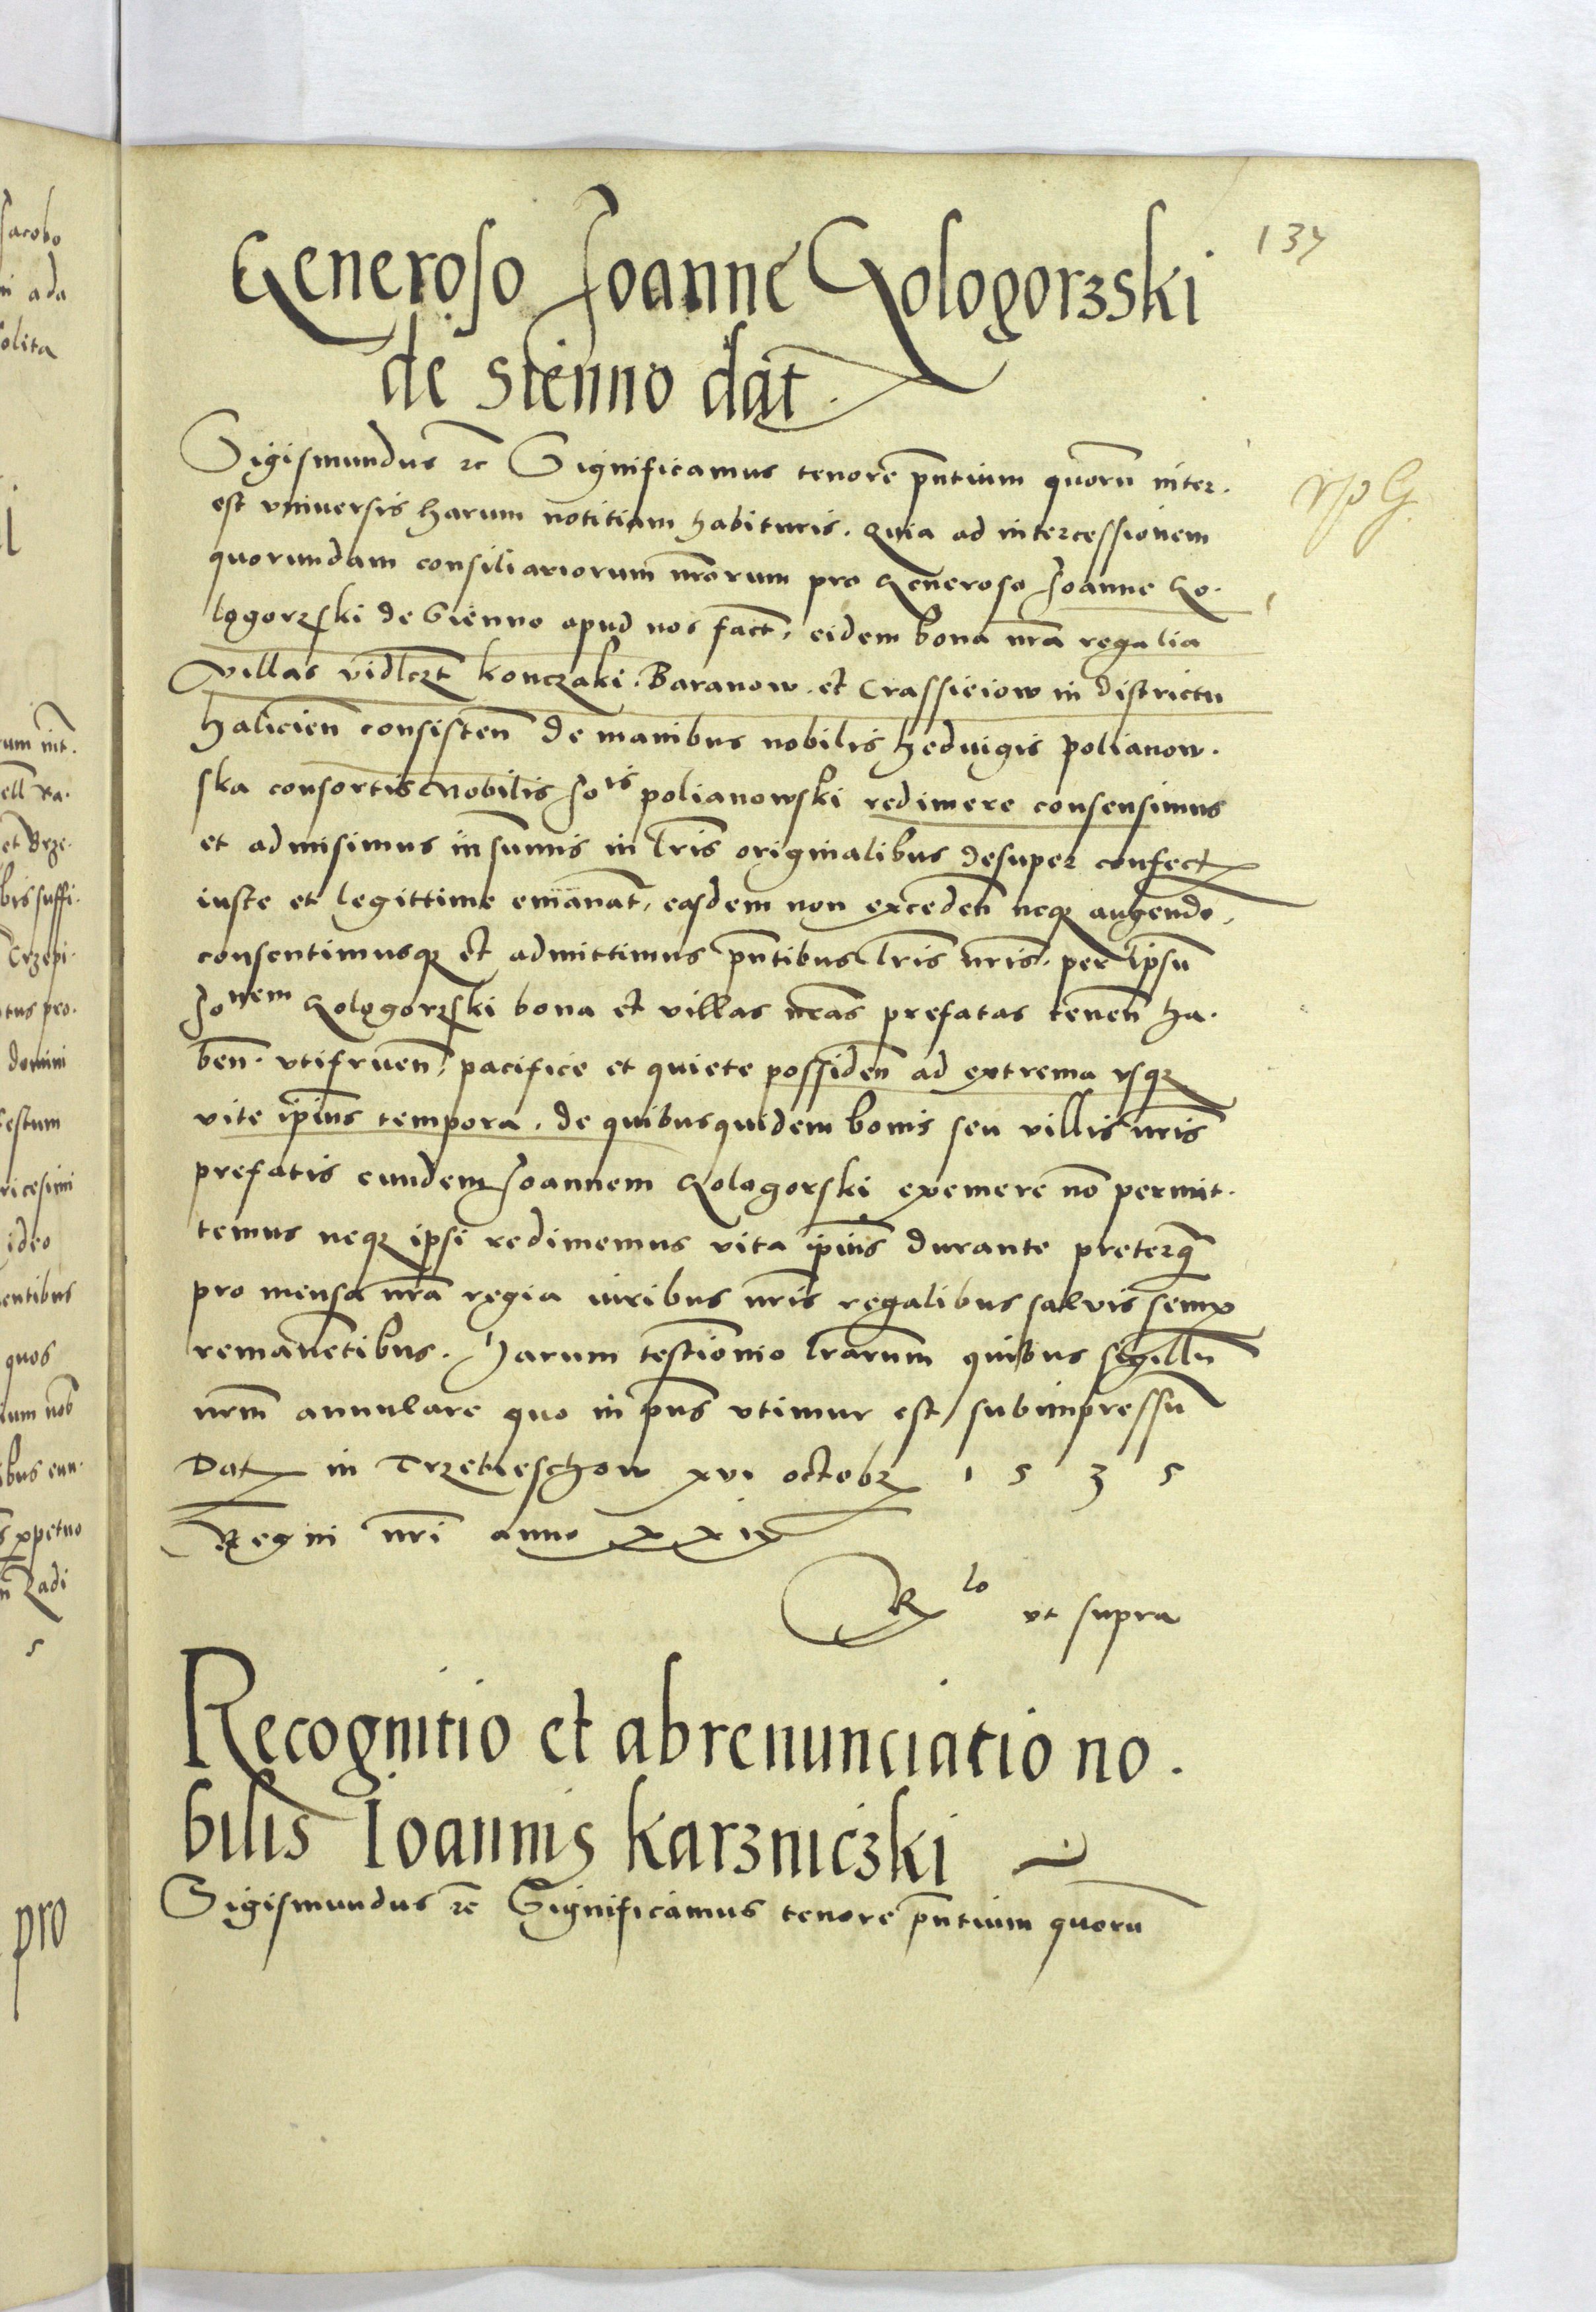 137
Generoso Joanne Gologorzski
de Sienno dat.
Sigismundus rc Significamus tenore pñtium quorũ inter.
est vniversis harum notitiam habituris. Quia ad intercessionem
quorundam consiliariorum nrorum pro Generoso Joanne Go.
logorzski de Sienno apud nos fact, eidem bona nra regalia
villas vidlczt konczaki. Baranow. et Crassieiow in districtu
halicien consisten de manibus nobilis hedvigis polianow.
ska consortis Nobilis Jois polianowski redimere consensimus
et admisimus in sumis in lris originalibus desuper confect
iuste et legittime emanat, easdem non exceden neqз augendo,
consentimusqз et admittimus pntibus lris nris. per ipsũ
Jonem Gologorzski bona et villas nras prefatas tenen ha.
ben. vtifruen, pacifice et quiete possiden ad extrema vsqз
vite ipius tempora. de quibusquidem bonis seu villis nris
prefatis eundem Joannem Gologorski eximere nõ permit.
temus neqз ipsi redimemus vita ipius durante preterq̃
pro mensa nra regia iuribus nris regalibus salvis semp
remanētibus. Harum testimonio lrarum quibus sigillũ
nrm annulare quo in pns vtimur est subimpressũ
Dat in Trzebieschow xvi octobr 1535
Regni nri anno xxix
Rlo vt supra
Recognitio et abrenunciatio no.
bilis Joannis Karzniczki
Sigismundus rc Significamus tenore pñtium quorũ